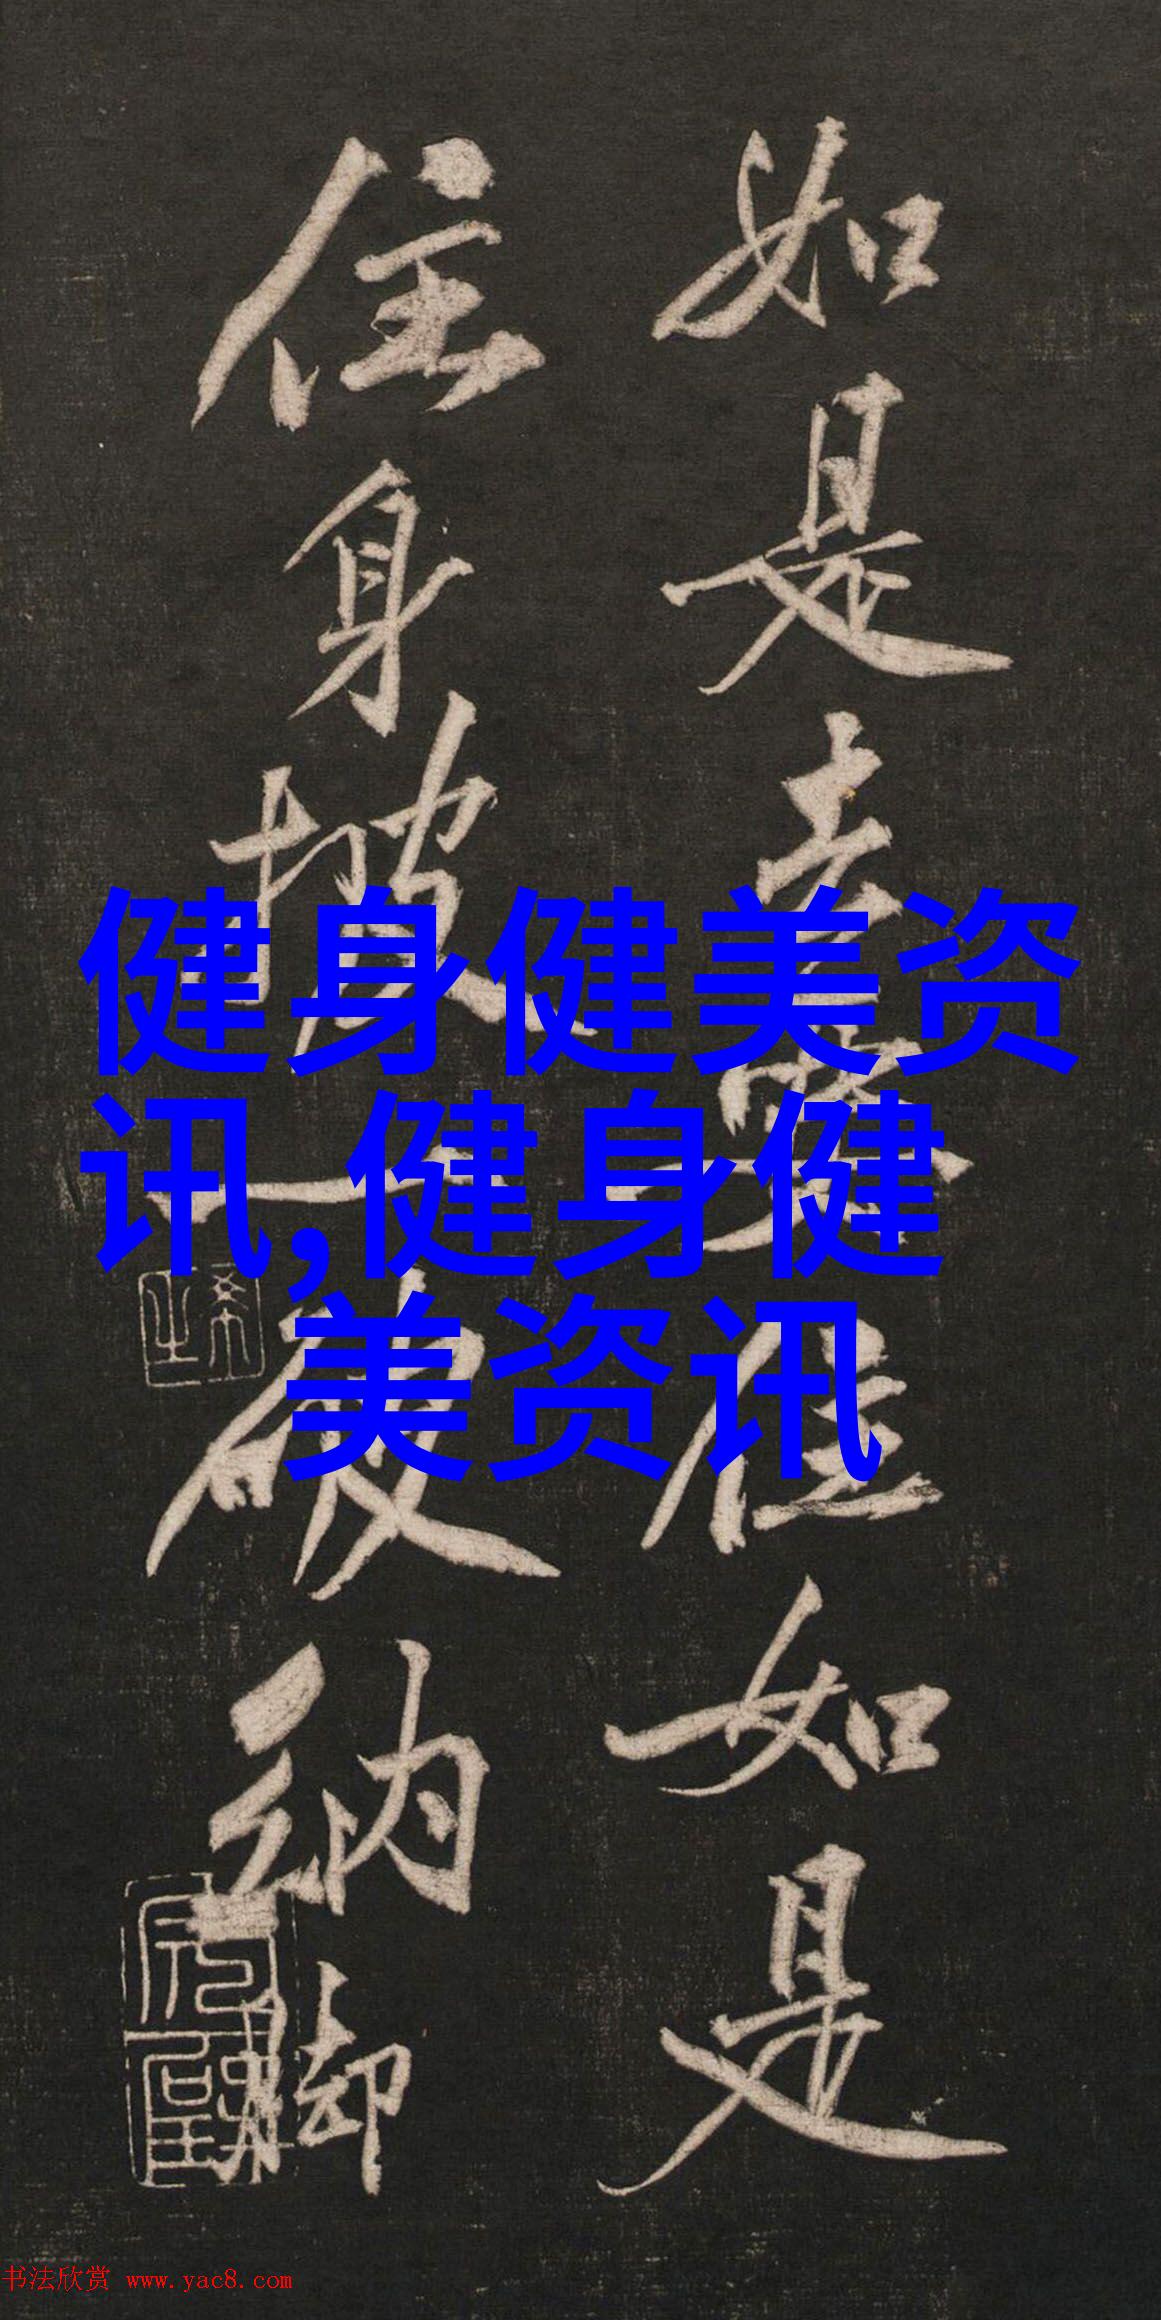 如是去住如是
住身披一破纳脚
健身健美资
讯,健身健
美资讯
书法欣赏 www.yac8.com